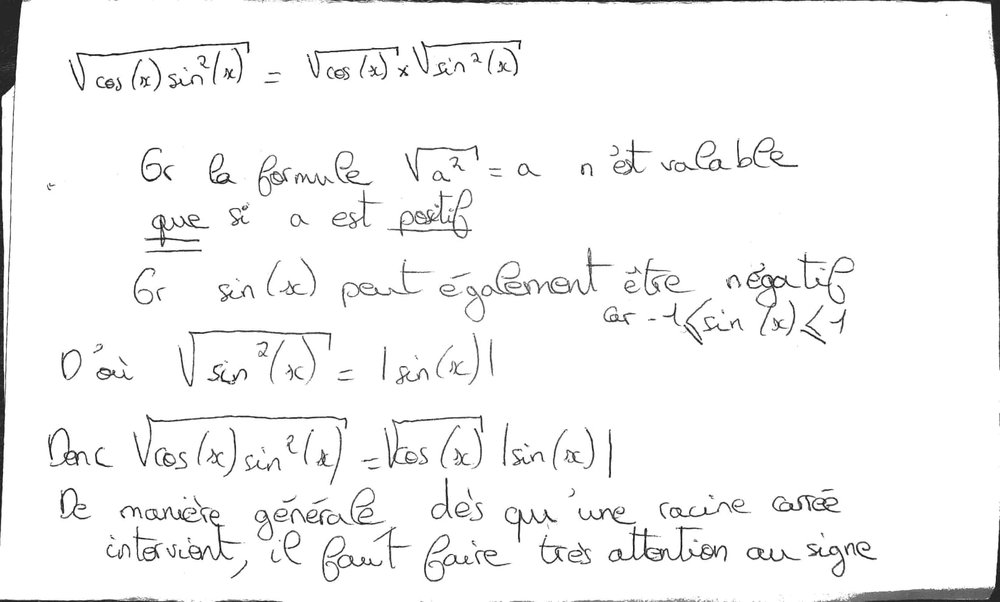 √(cos(x) sin²(x)) = √(cos(x)) × √(sin²(x))
Or la formule √(a²) = a n'est valable
que si a est positif
Or sin(x) peut également être négatif
car -1 ≤ sin(x) ≤ 1
D'où √(sin²(x)) = |sin(x)|
Donc √(cos(x) sin²(x)) = √(cos(x)) |sin(x)|
De manière générale, dès qu'une racine carrée
intervient, il faut faire très attention au signe